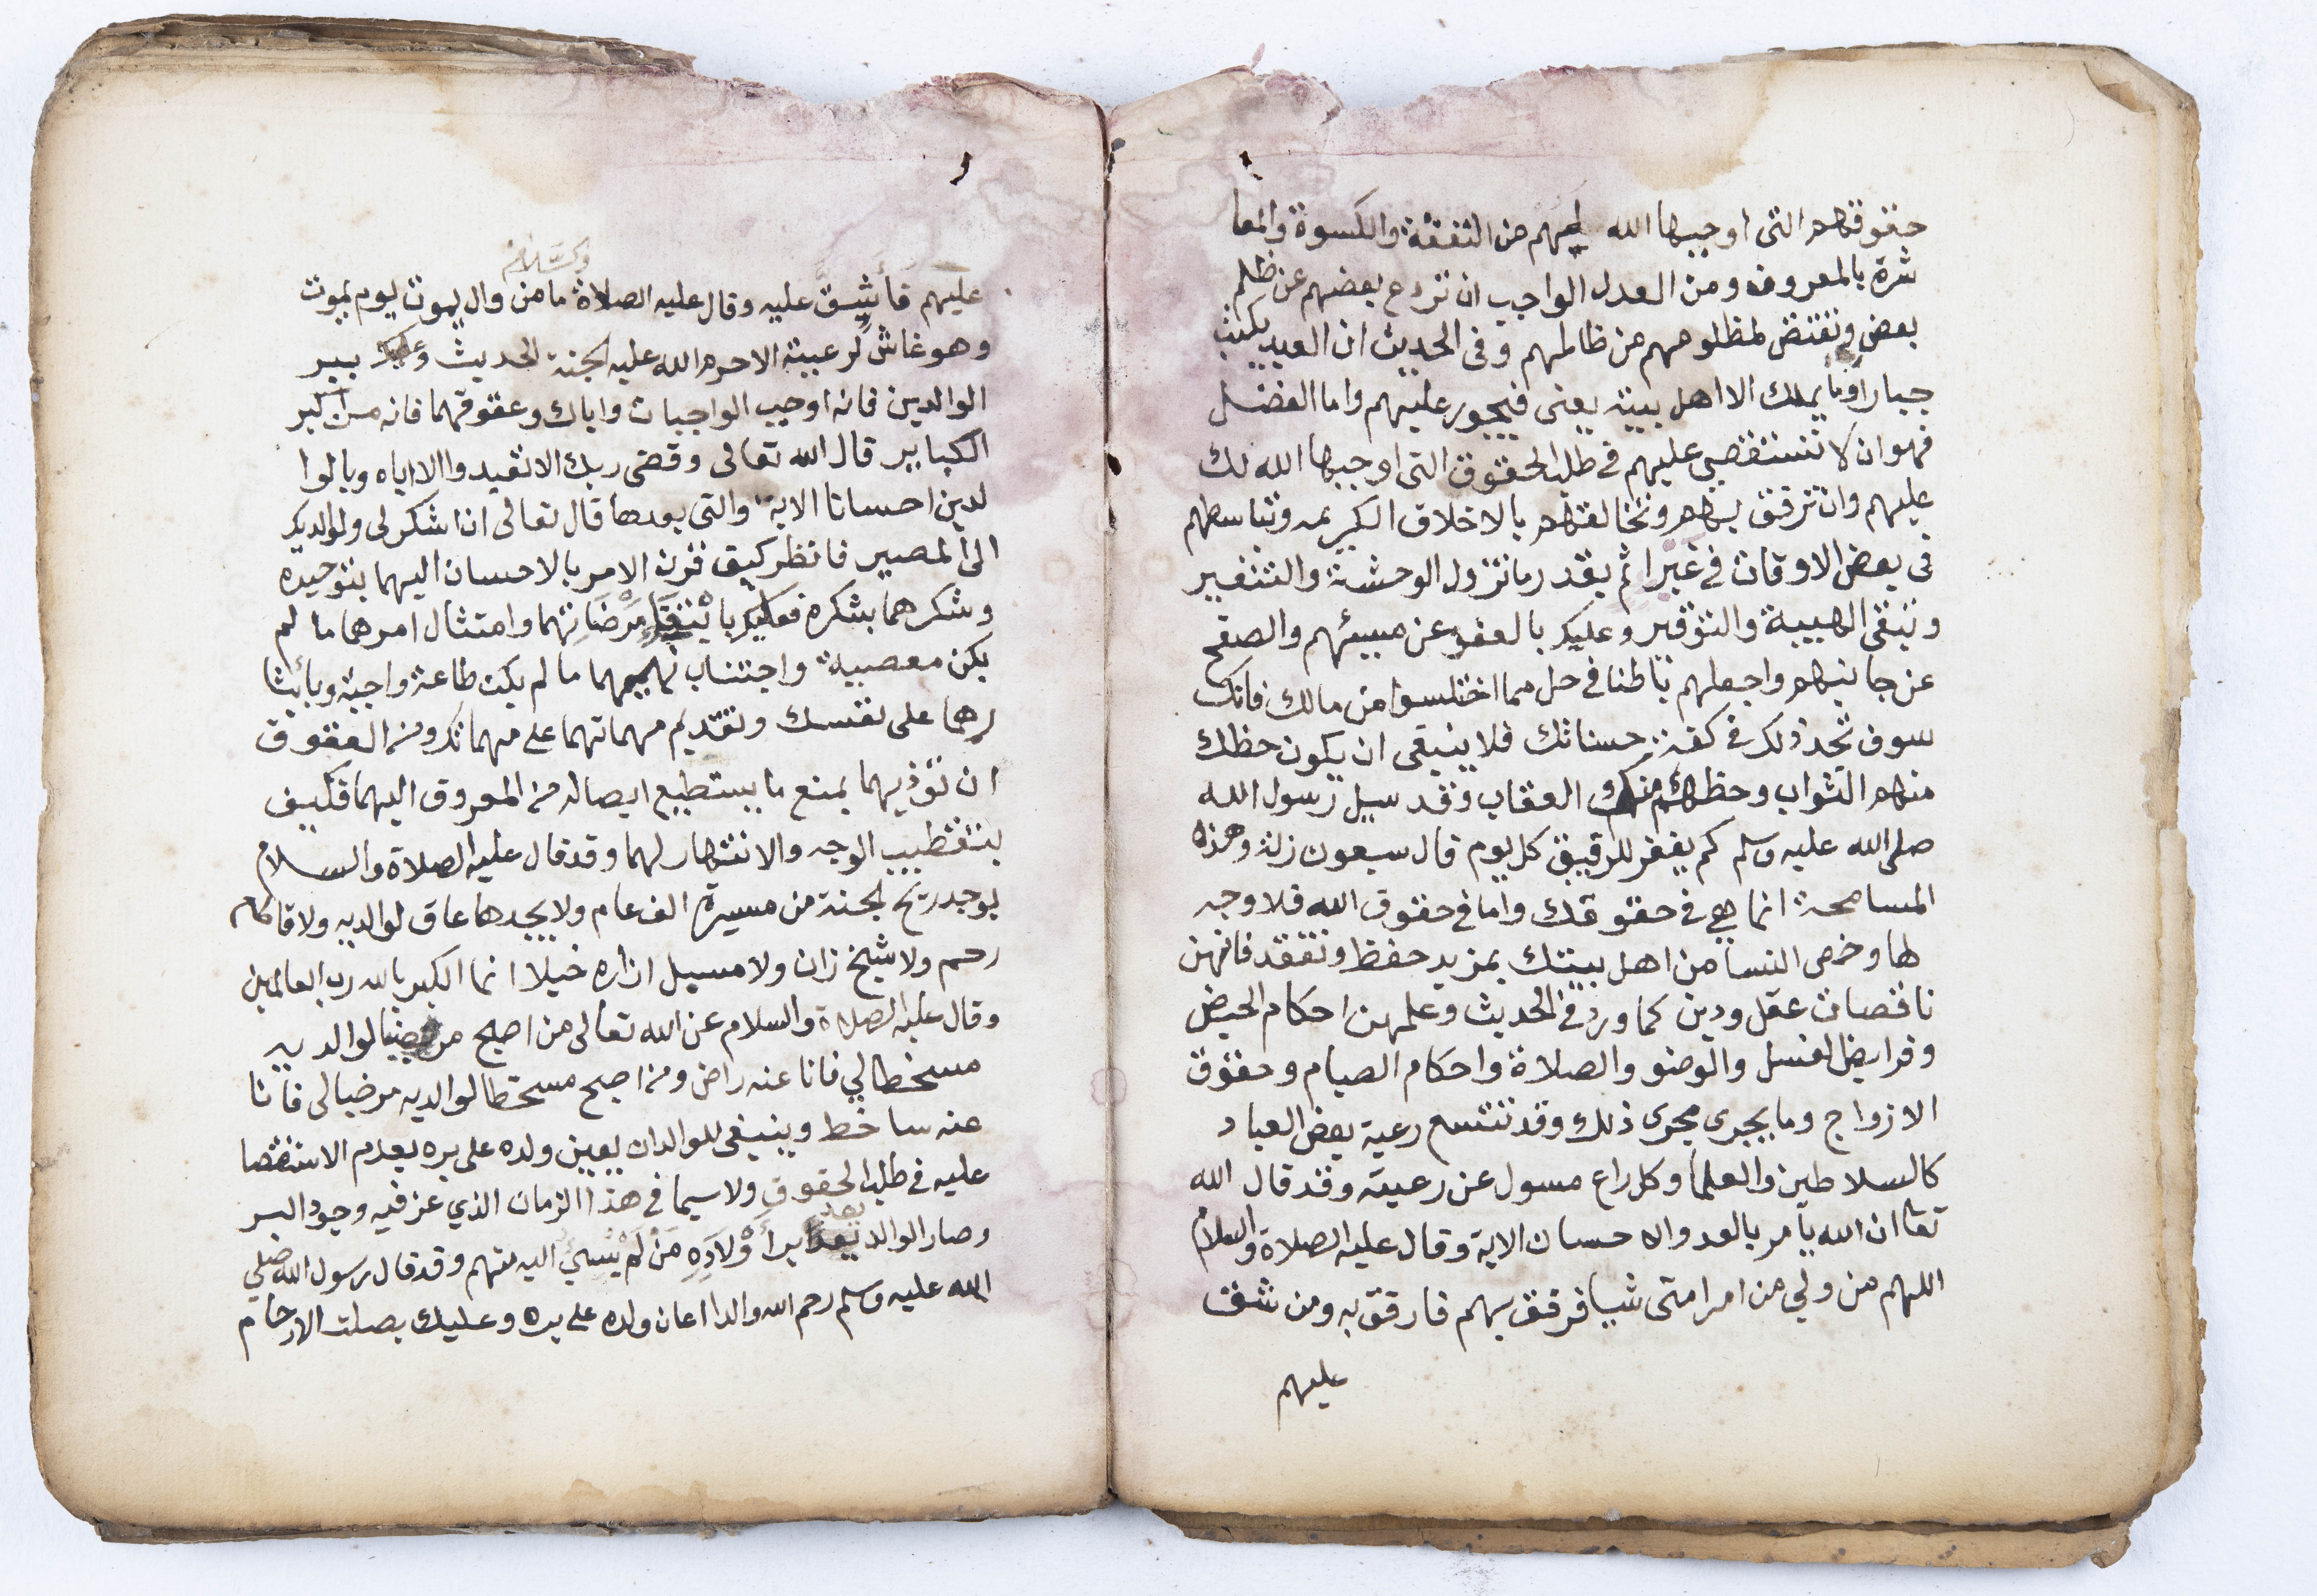 حقوقهم التى اوجبها الله عليهم من النفقة والكسوة والمعا
شرة بالمعروف ومن العدل الواجب ان تردع بعضهم عن ظلم
بعض وتقتض لمظلومهم من ظالمهم وفى الحديث ان العبد يكتب
جبارا وما يملك الا اهل بيته يعنى فيجور عليهم واما الفضل
فهو ان لا تستقصي عليهم فى طلب الحقوق التى اوجبها الله لك
عليهم وان ترفق بهم وتخالقهم بالاخلاق الكريمه وتباسطهم
فى بعض الاوقات فى غير اثم بقدر ما تزول الوحشة والتنفير
وتبقى الهيبة والتوقير وعليك بالعفو عن مسيئهم والصفح
عن جانيهم واجعلهم باطنا فى حل مما اختلسوا من مالك فانك
سوف تجد ذلك فى كفة حسناتك فلا ينبغى ان يكون حظك
منهم الثواب وحظهم منك العقاب وقد سيل رسول الله
صلى الله عليه وسلم كم يغفر للرقيق كل يوم قال سبعون زلة وهذه
المسامحة انما هي فى حقوقك واما فى حقوق الله فلا وجه
لها وخص النسا من اهل بيتك بمزيد حفظ وتفقد فانهن
ناقصات عقل ودين كما ورد فى الحديث وعلمهن احكام الحيض
وفرايض الغسل والوضو والصلاة واحكام الصيام وحقوق
الازواج وما يجرى مجرى ذلك وقد تتسع رعية بعض العباد
كالسلاطين والعلما وكل راع مسول عن رعيته وقد قال الله
تعا ان الله يامر بالعدل والاحسان الاية وقال عليه الصلاة والسلام
اللهم من ولي من امر امتى شيا فرفق بهم فارفق به ومن شق
عليهم
والسلام
عليهم فأشق عليه وقال عليه الصلاة ما من وال يموت يوم يموت
وهو غاش لرعيته الا حرم الله عليه الجنة الحديث وعليك ببر
الوالدين فانه اوجب الواجبات واياك وعقوقهما فانه من اكبر
الكباير قال الله تعالى وقضى ربك الا تعبدوا الا اياه وبالوا
لدين احسانا الاية والتى بعدها قال تعالى ان اشكر لى ولوالديك
الى المصير فانظر كيف قرن الامر بالاحسان اليهما بتوحيده
وشكرهما بشكره فعليك مرضاتهما وامتثال امرهما ما لم
يكن معصية واجتناب نهيهما ما لم يكن طاعة واجبة وبايثا
رهما على نفسك وتقديم مهماتهما على مهماتك ومن العقوق
ان تؤذيهما بمنع ما يستطيع ايصاله من المعروف اليهما فكيف
بتقطيب الوجه والانتهار لهما وقد قال عليه الصلاة والسلام
يوجد ريح الجنة من مسيرة الف عام ولا يجدها عاق لوالديه ولا قاطع
رحم ولا شيخ زان ولا مسبل ازاره خيلا انما الكبريا لله رب العالمين
وقال عليه الصلاة والسلام عن الله تعالى من اصبح مرضيا لوالديه
مسخطا لي فانا عنه راض ومن اصبح مسخطا لوالديه مرضيا لى فانا
عنه ساخط وينبغى للوالد ان يعين ولده على بره بعدم الاستقصا
عليه فى طلب الحقوق ولا سيما فى هذا الزمان الذي عز فيه وجود البر
بعد
وصار الوالد يعد برا أولاده من لم يسئ اليه منهم وقد قال رسول الله صلي
الله عليه وسلم رحم الله والدا اعان ولده على بره وعليك بصلت الارحام